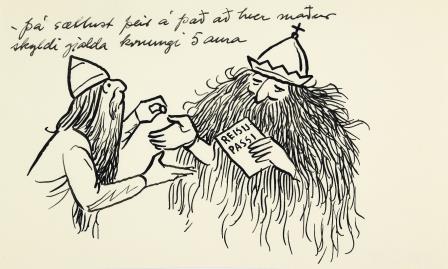 - þá sættust þeir á það að hver maður
skyldi gjalda konungi 5 aura
REISU-
PASSI